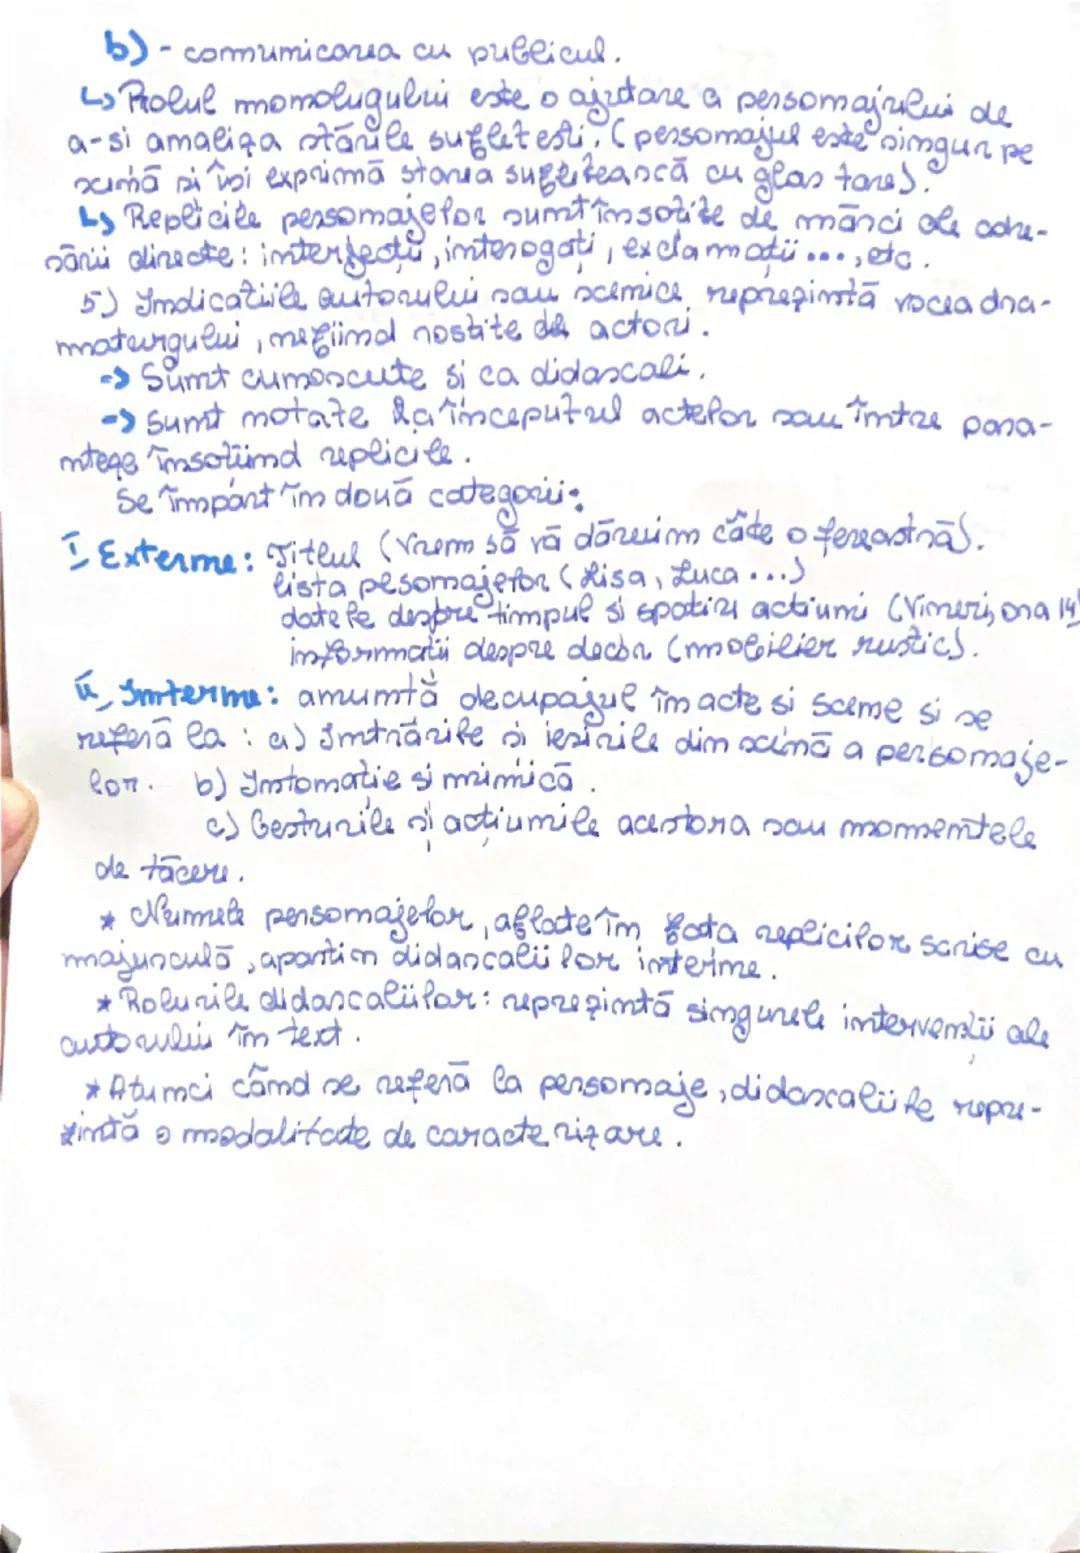 b) - comunicarea cu publicul.
↳ Rolul monolugului este o ajutare a personajului de
a-si analiza stările sufletesti. (personajul este singur pe
scenă și își exprimă starea sufletească cu glas tare).
↳ Replicile personajelor sunt însotite de mărci ale adre-
sării directe: interjecții, interogați, exclamații ..., etc.
5) Indicatiile autorului sau scenice reprezintă vocea dra-
maturgului, nefiind rostite de actori.
-> Sunt cunoscute si ca didascali.
-> sunt notate la începutul actelor sau între para-
nteze însotiind replicile.
Se împart în două categorii:
I Externe: Titlul (Vrem să vă dăruim câte o fereastră).
lista pesonajelor (Lisa, Luca ...)
datele despre timpul si spatiul actiuni (Vineri, ora 14)
informatii despre decor (mobilier rustic).
II Interne: anuntă decupajul în acte si scene si se
referă la: a) Intrările si iesirile din scenă a personaje-
lor. b) Intonatie si mimică.
c) Gesturile și acțiunile acestora sau momentele
de tăcere.
* Numele personajelor, aflate în fata replicilor scrise cu
majusculă, apartin didascaliilor interne.
* Rolurile didascaliilor: reprezintă singurele intervenții ale
autorului în text.
* Atunci când se referă la personaje, didascaliile repre-
zintă o modalitate de caracterizare.